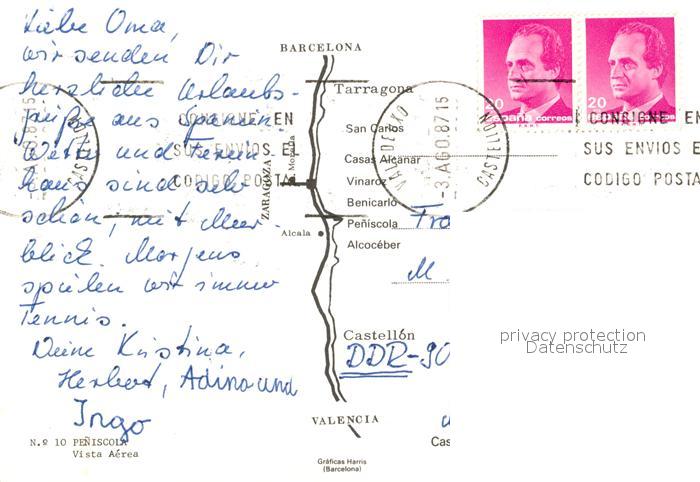 Liebe Oma,
wir senden Dir
herzliche Urlaubs-
grüße aus Spanien
Wetter und Ferien-
haus sind sehr
schön, mit Meer-
blick. Morgens
spielen wir immer
Tennis.
Deine Kristina,
Herbert, Adina und
Ingo
N.º 10 PEÑISCOLA
Vista Aérea
CONSIGNE EN
SUS ENVIOS EL
CODIGO POSTAL
BARCELONA
Tarragona
San Carlos
Casas Alcanar
Vinaroz
Benicarló
Peñíscola
Alcocéber
ZARAGOZA
a. Morella
Alcala
Castellón
VALENCIA
Gráficas Harris
(Barcelona)
Fra
M
DDR-90
Cas
-3.AGO.87.15
CASTELLON
20
España correos
F.N.M.T.
20
España correos
CONSIGNE EN
SUS ENVIOS E
CODIGO POSTA
privacy protection
Datenschutz